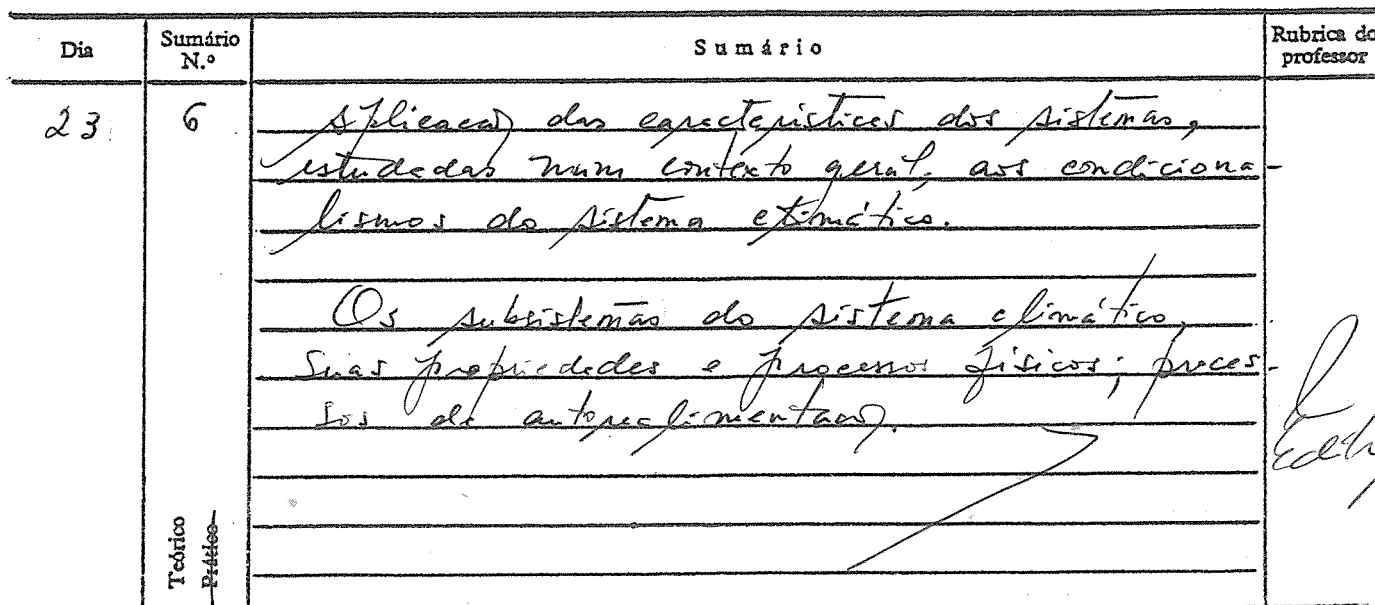 Dia
Sumário N.º
Sumário
Rubrica do professor
23
6
Aplicação das características dos sistemas,
estudadas num contexto geral, aos condiciona-
lismos do sistema climático.
Os subsistemas do sistema climático,
suas propriedades e processos físicos; proces-
sos de autorealimentação.
Teórico
Prático